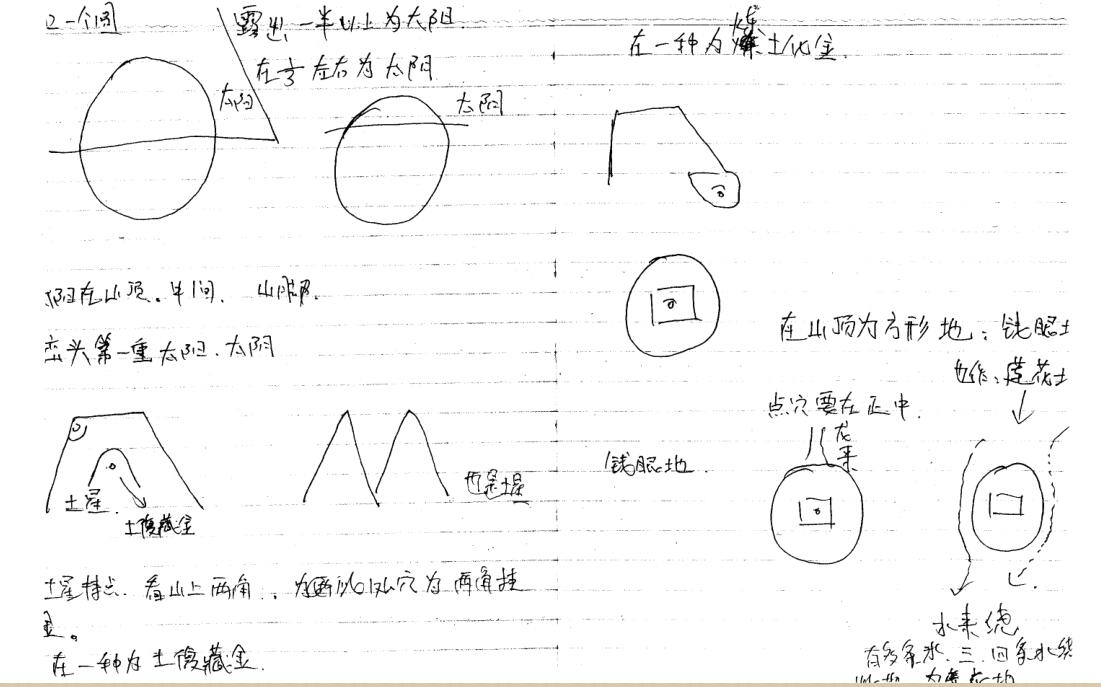 2一个圆
露出一半以上为太阳.
在⅓左右为太阴
太阳
太阴
阳在山顶、半间、山脚.
峦头第一重太阳、太阴
土星
土腹藏金
也是土星
土星特点. 看山上两角, 为两角挂
金。
在一种为土腹藏金.
在一种为 土化金.
在山顶为方形地: 钱眼土
也作: 莲花土
点穴要在正中.
龙来
钱眼地.
水来绕
有多条水. 三. 四条水绕